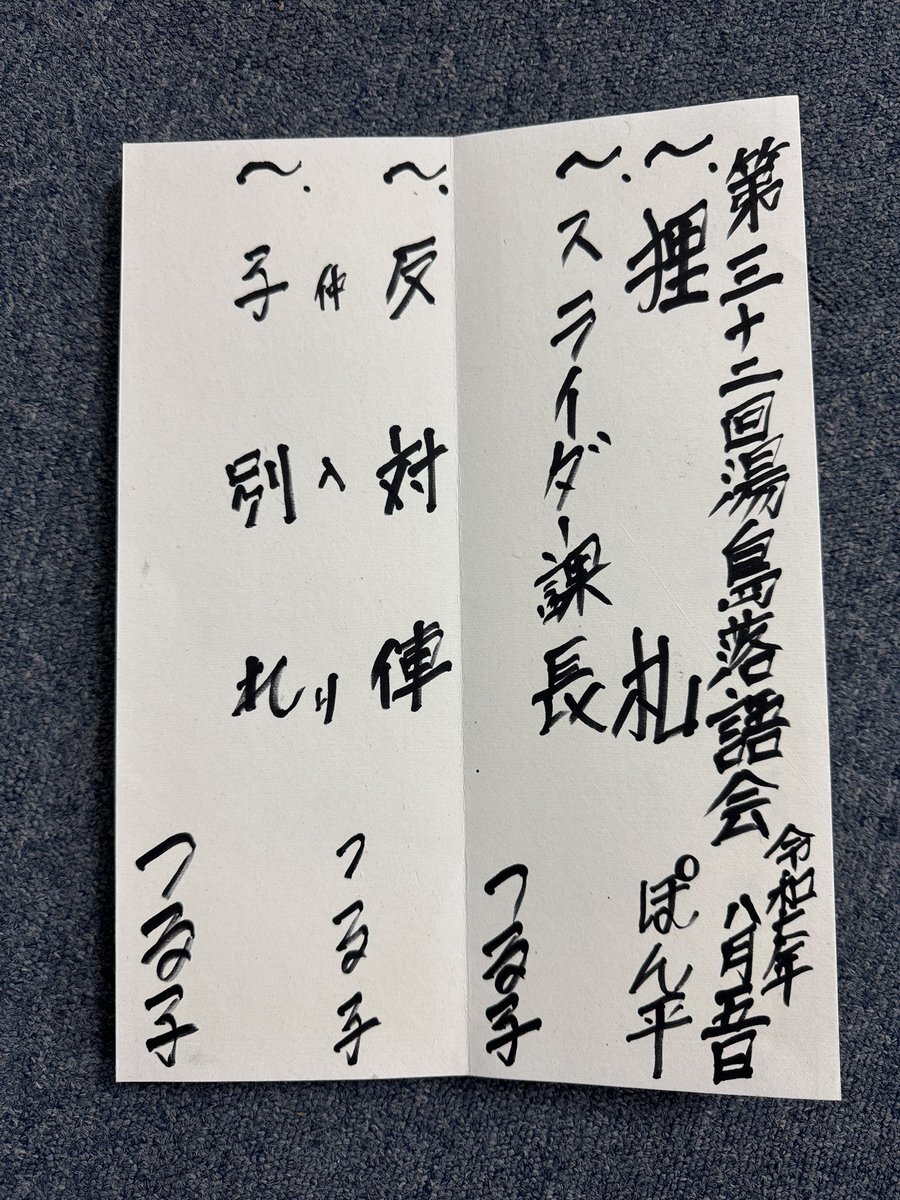 第三十二回湯島落語会
令和七年
八月五日
〽狸札 ぽん平
〽スライダー課長 つる子
〽反対俥 つる子
仲入り
〽子別れ つる子